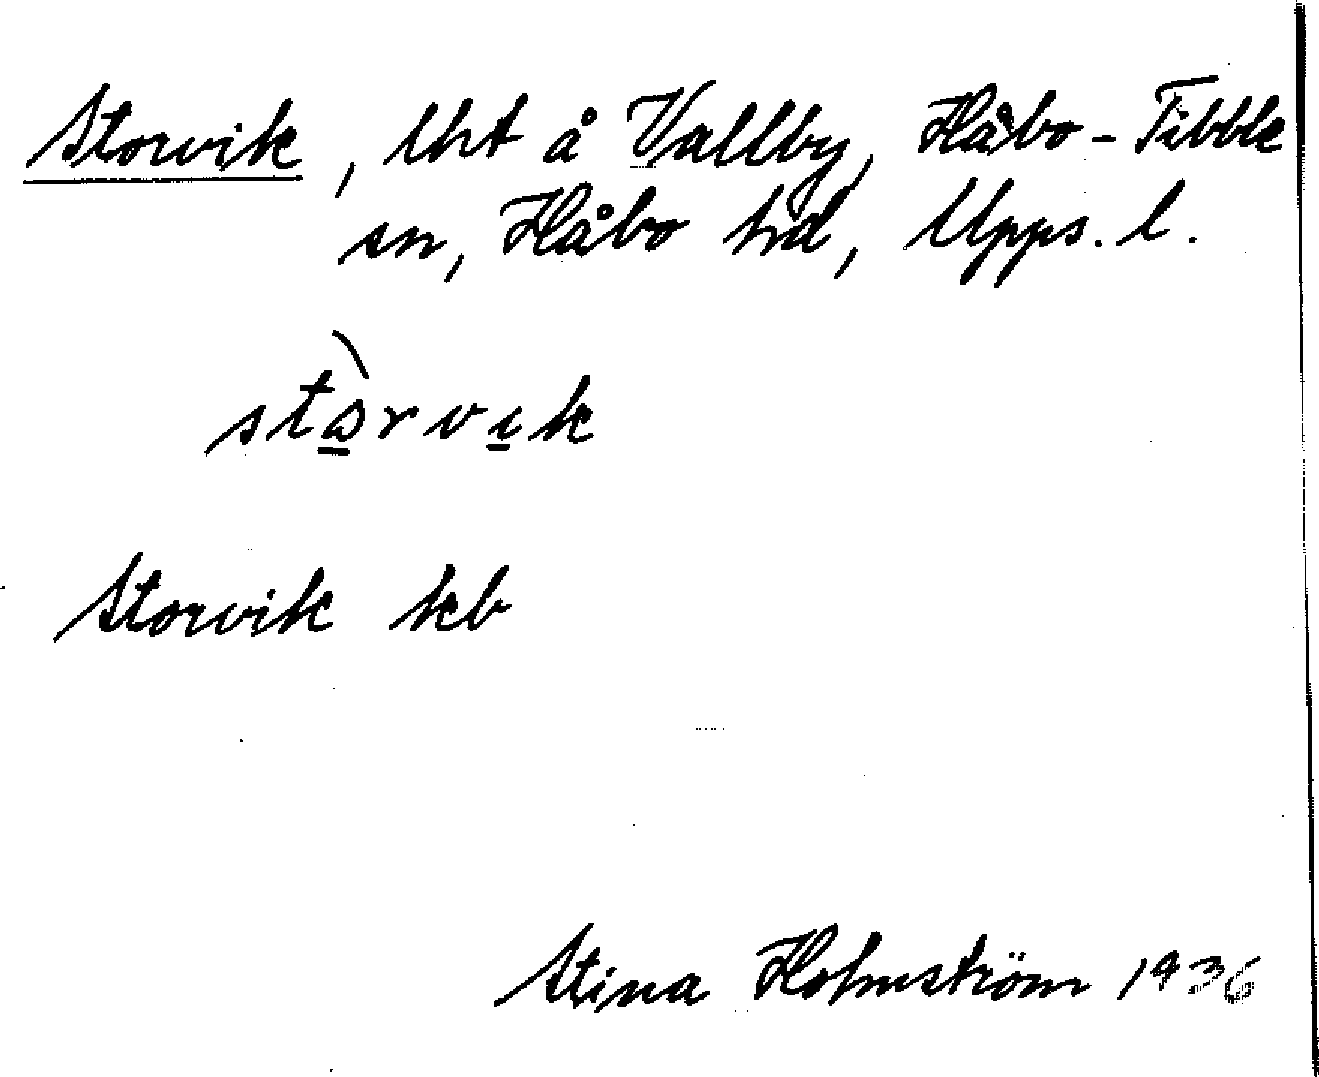 Storvik, lht å Vallby, Håbo-Tibble
sn, Håbo hd, Upps. l.
Storvik kb
Stina Holmström 1936